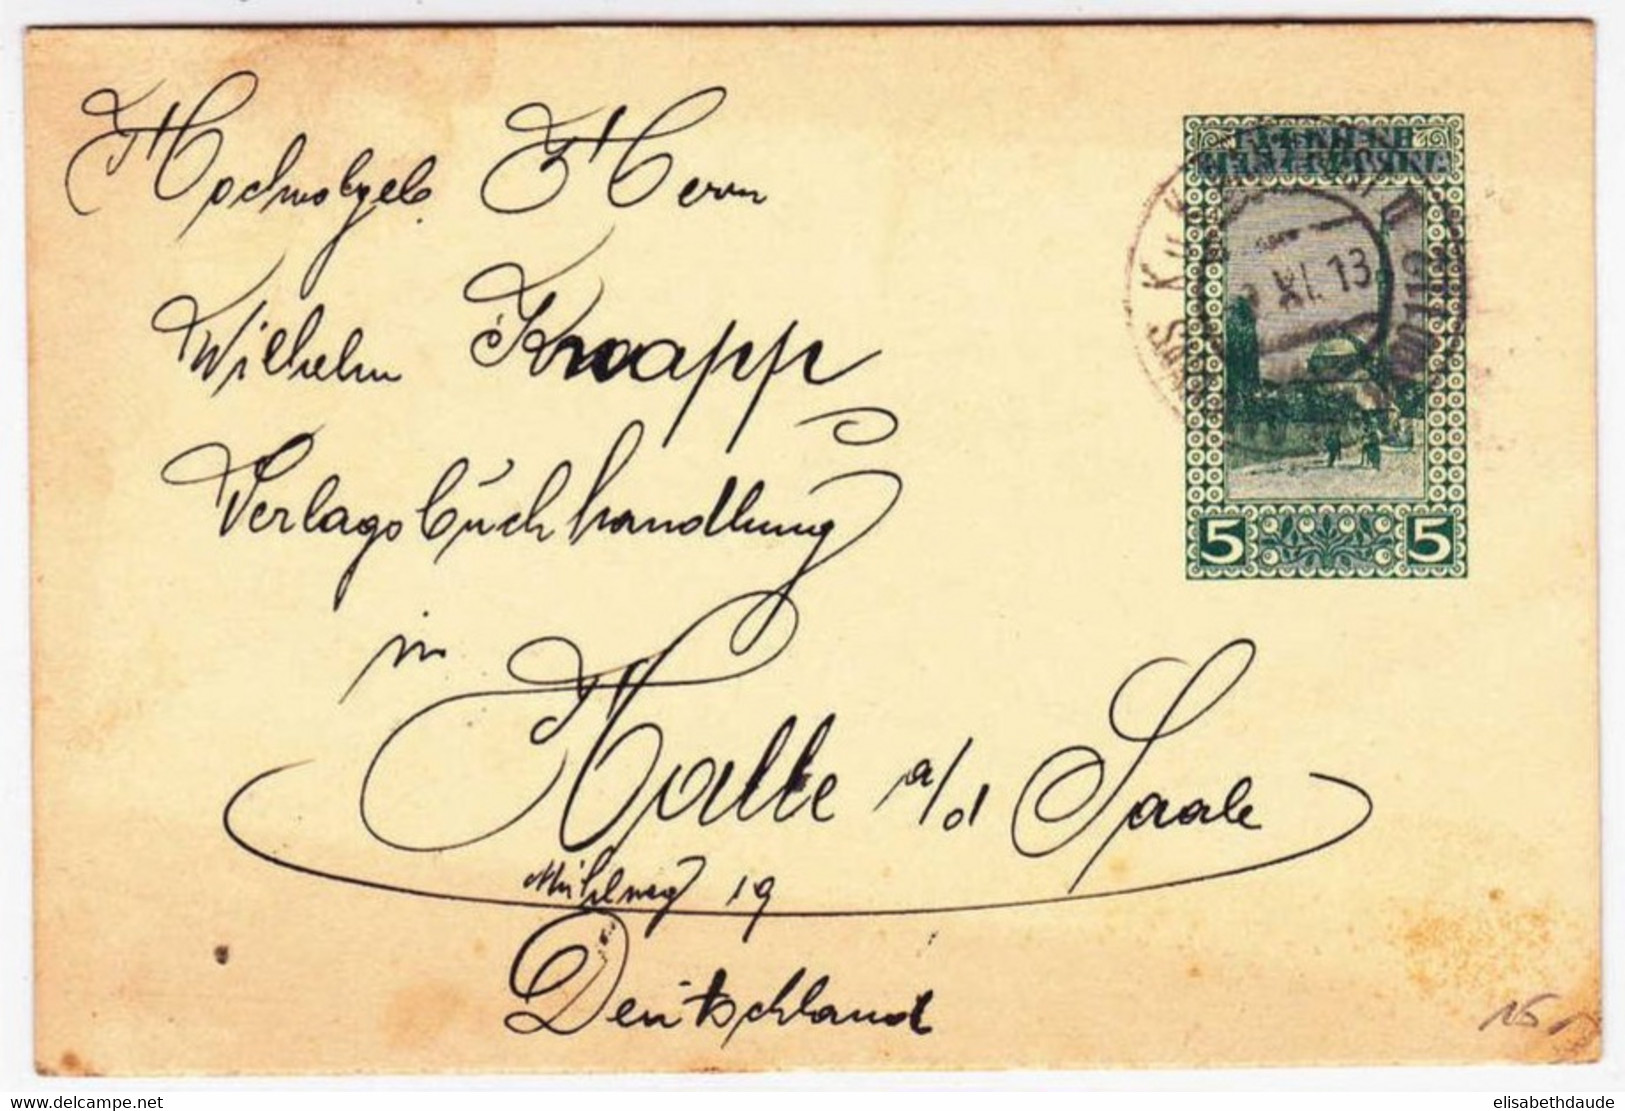 Hochwolgeb. Herrn
Wilhelm Knapp
Verlagsbuchhandlung
in
Halle a/d Saale
Mühlweg 19
Deutschland
XI. 13
5 5
15
elisabethdaude